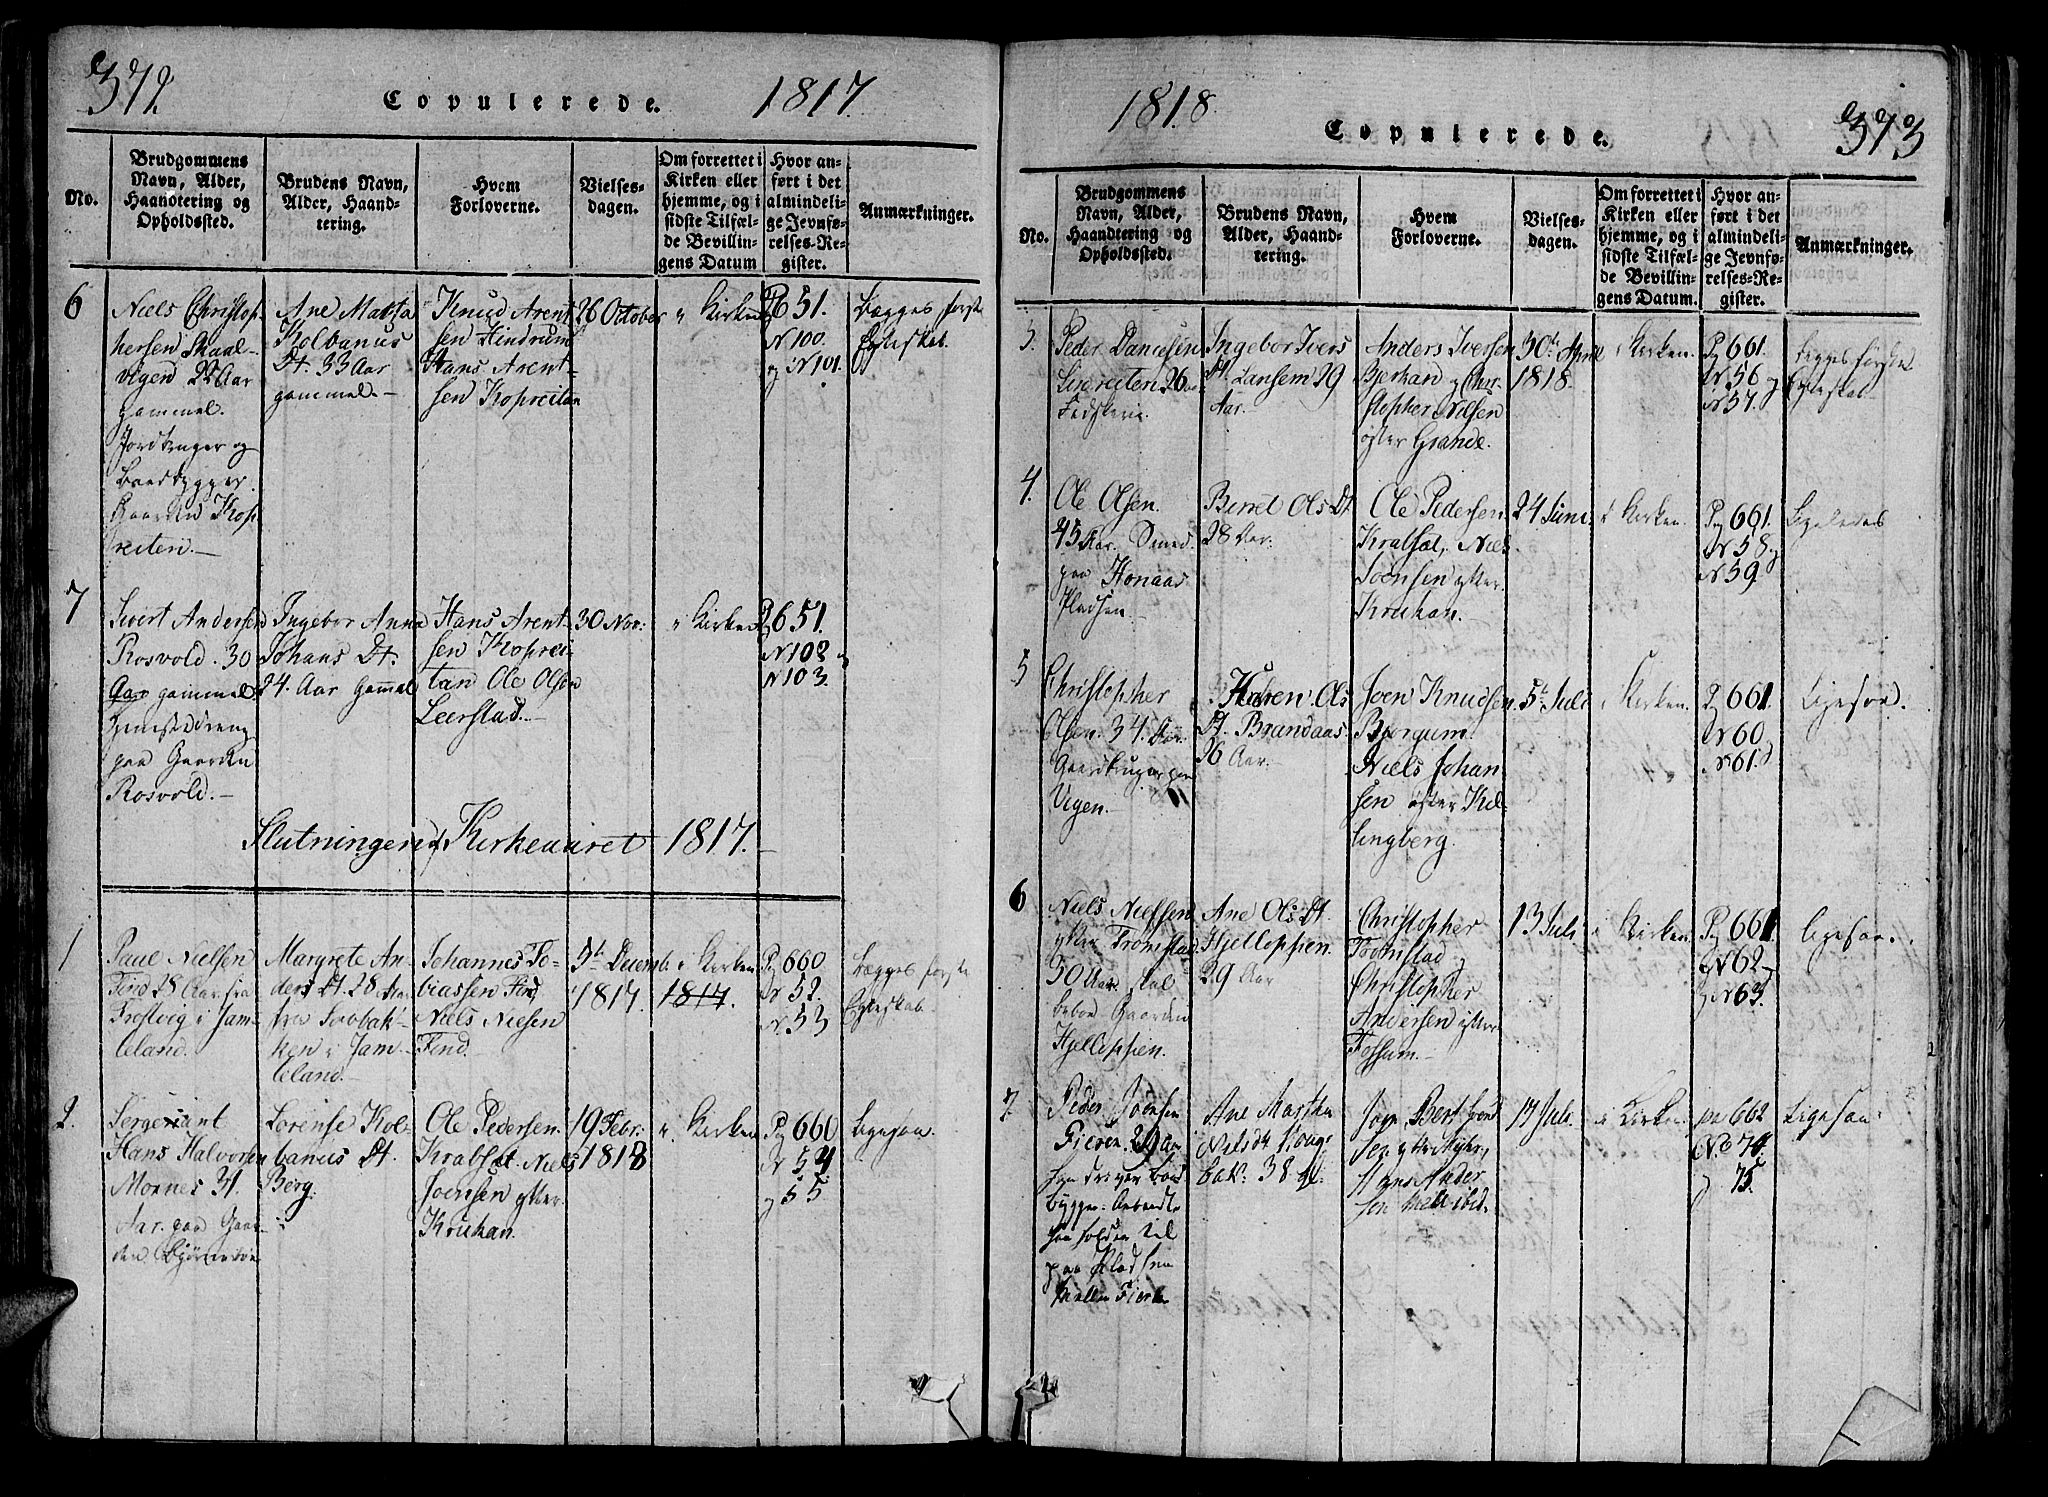 372
Copulerede.
1817.
No.
Brudgommens
Navn, Alder,
Haandtering og
Opholdssted.
Brudens Navn,
Alder, Haand-
tering.
Hvem
Forloverne.
Vielses-
dagen.
Om forrettet i
Kirken eller
hjemme, og i
sidste Tilfæl-
de Bevillin-
gens Datum
Hvor an-
ført i det
almindeli-
ge Jevnfø-
relses-Re-
gister.
Anmærkninger.
6
Niels Christop
hersen Skaal-
vigen 22 Aar
gammel.
Jordbruger og
Baadbygger
Gaarden Kop
reiten.
Ane Marta
Kolbanus
Dt. 33 Aar
gammel.
Knud Arent
sen Hindrum
Hans Arent-
sen Kopreitan
26 October
Kirken
Pg 651.
N 100.
og N 101.
Begges første
Egteskab.
7
Sivert Andersen
Rosvold. 30
Aar gammel
paa Gaarden
Rosvold.
Ingebor Anna
Johans Dt.
24. Aar Gammel
Hans Arent-
sen Koprei-
tan Ole Olsen
Leerstad.
30 Nov:
Kirken
Pg 651.
N 102
N 103.
Slutningen af Kirkeaaret 1817.
1
Paul Nielsen
Find 28 Aar fra
Frostvig i Jam-
teland.
Margrete An-
ders Dt. 28 Aar
fra
ken i Jam-
teland.
Johannes To-
biassen Find
Niels Nielsen
Find.
5te Decemb.
1817.
i Kirken
1817.
Pg 660
N 52.
N 53
Begges første
Egteskab.
2.
Sergeiant
Hans Halvorsen
Mornes 31.
Aar. paa Gaar
den
Lorense Kol-
banus Dt.
Berg.
Ole Pedersen
Krabsæt. Niels
Joensen ytter
Kruhan.
19 Febr.
1818
Kirken
Pg 660
N 54
og 55
Ligesaa.
1818.
Copulerede.
373
No.
Brudgommens
Navn, Alder,
Haandtering og
Opholdssted.
Brudens Navn,
Alder, Haand-
tering.
Hvem
Forloverne.
Vielses-
dagen.
Om forrettet i
Kirken eller
hjemme, og i
sidste Tilfæl-
de Bevillin-
gens Datum.
Hvor an-
ført i det
almindeli-
ge Jevnfø-
relses-Re-
gister.
Anmærkninger.
3.
Peder Danielsen
26 Aar
Ingebor Ivers
Dt. Lansem 29
Aar.
Anders Iversen
Bjørhan og Chri-
stopher Nilsen
øster Grande.
30te April
1818.
i Kirken.
Pg 661.
N 56 og
N 57.
Begges første
Egteskab
4.
Ole Olsen.
45 Aar. Smed
paa Honaas
Pladsen.
Berret Ols Dt.
28 Aar.
Ole Pedersen
Krabsæt, Niels
Joensen ytter
Kruhan.
24 Juni
i Kirken.
Pg 661.
N 58 og
N 59
Ligeledes
5
Christopher
Olsen. 34. Aar.
Gaardbruger paa
Vigen.
Karen Ols
Dt. Brandaas.
26 Aar.
Joen Knudsen
Bjørgum.
Niels Johan
sen øster Kel-
lingberg.
5te Juli
i Kirken.
Pg 661
N 60
N 61.
Ligesaa.
6
Niels Nielsen
ytter Tromstad
30 Aar. skal
beboe Gaarden
Hjelloppien.
Ane Ols Dt.
Hjelloppien
29 Aar
Christopher
Tromstad og
Christopher
Andersen ytter
Fossum.
13 Juli
i Kirken
Pg 661.
N 62
og N 63.
ligesaa.
7.
Peder Joensen
Fieren. 29 Aar
bygger-
paa Pladsen
Ane Martha
Nielsdt.
bak. 38 Al.
sen ytter
Hans Ander
sen
17 Juli
i Kirken
pa 662
No. 74.
og 75.
Ligesaa